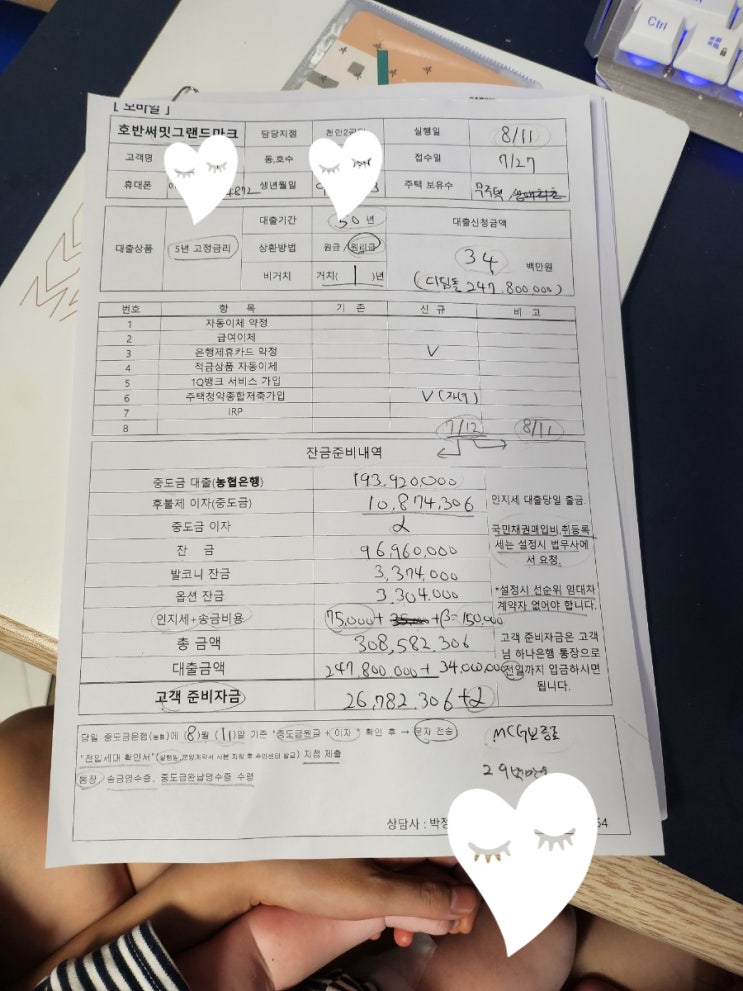 [ 모바일 ]
호반써밋그랜드마크 담당지점 천안2공단 실행일 8/11
고객명 동,호수 접수일 7/27
휴대폰 4892 생년월일 주택 보유수 무주택
대출기간 50 년 대출신청금액
대출상품 5년 고정금리 상환방법 원금 / 원리금 34 백만원
비거치 거치( 1 )년 (디딤돌 247.800,000)
번호 항 목 기 존 신 규 비 고
1 자동이체 약정
2 급여이체
3 은행제휴카드 약정 V
4 적금상품 자동이체
5 1Q뱅크 서비스 가입
6 주택청약종합저축가입 V
7 IRP
8 7/12 8/11
잔금준비내역
중도금 대출(농협은행) 193,920,000
후불제 이자(중도금) 10,874,306 인지세 대출당일 출금.
중도금 이자 α 국민채권매입비, 취등록
세는 설정시 법무사에
서 요청.
잔 금 96,960,000
발코니 잔금 3,374,000
옵션 잔금 3,304,000 *설정시 선순위 임대차
계약자 없어야 합니다.
인지세+송금비용 75,000+ 35,000 +β=150,000
총 금액 308,582,306 고객 준비자금은 고객
님 하나은행 통장으로
대출금액 247,800,000 + 34,000,000 전일까지 입금하시면
됩니다.
고객 준비자금 26,782,306+α
당일 중도금은행(농협)에 (8)월 (11)일 기준 "중도금원금 + 이자" 확인 후 → 문자 전송 MCG보증료
"전입세대 확인서" 지참 제출
통장, 송금영수증, 중도금완납영수증 수령 29백만원
상담사 : 박정 54